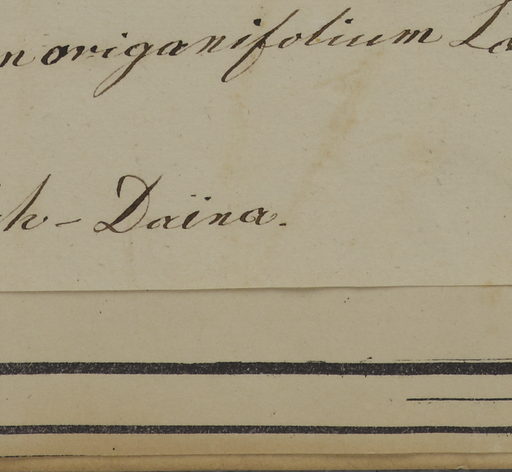 n origanifolium La
h - Daïna.